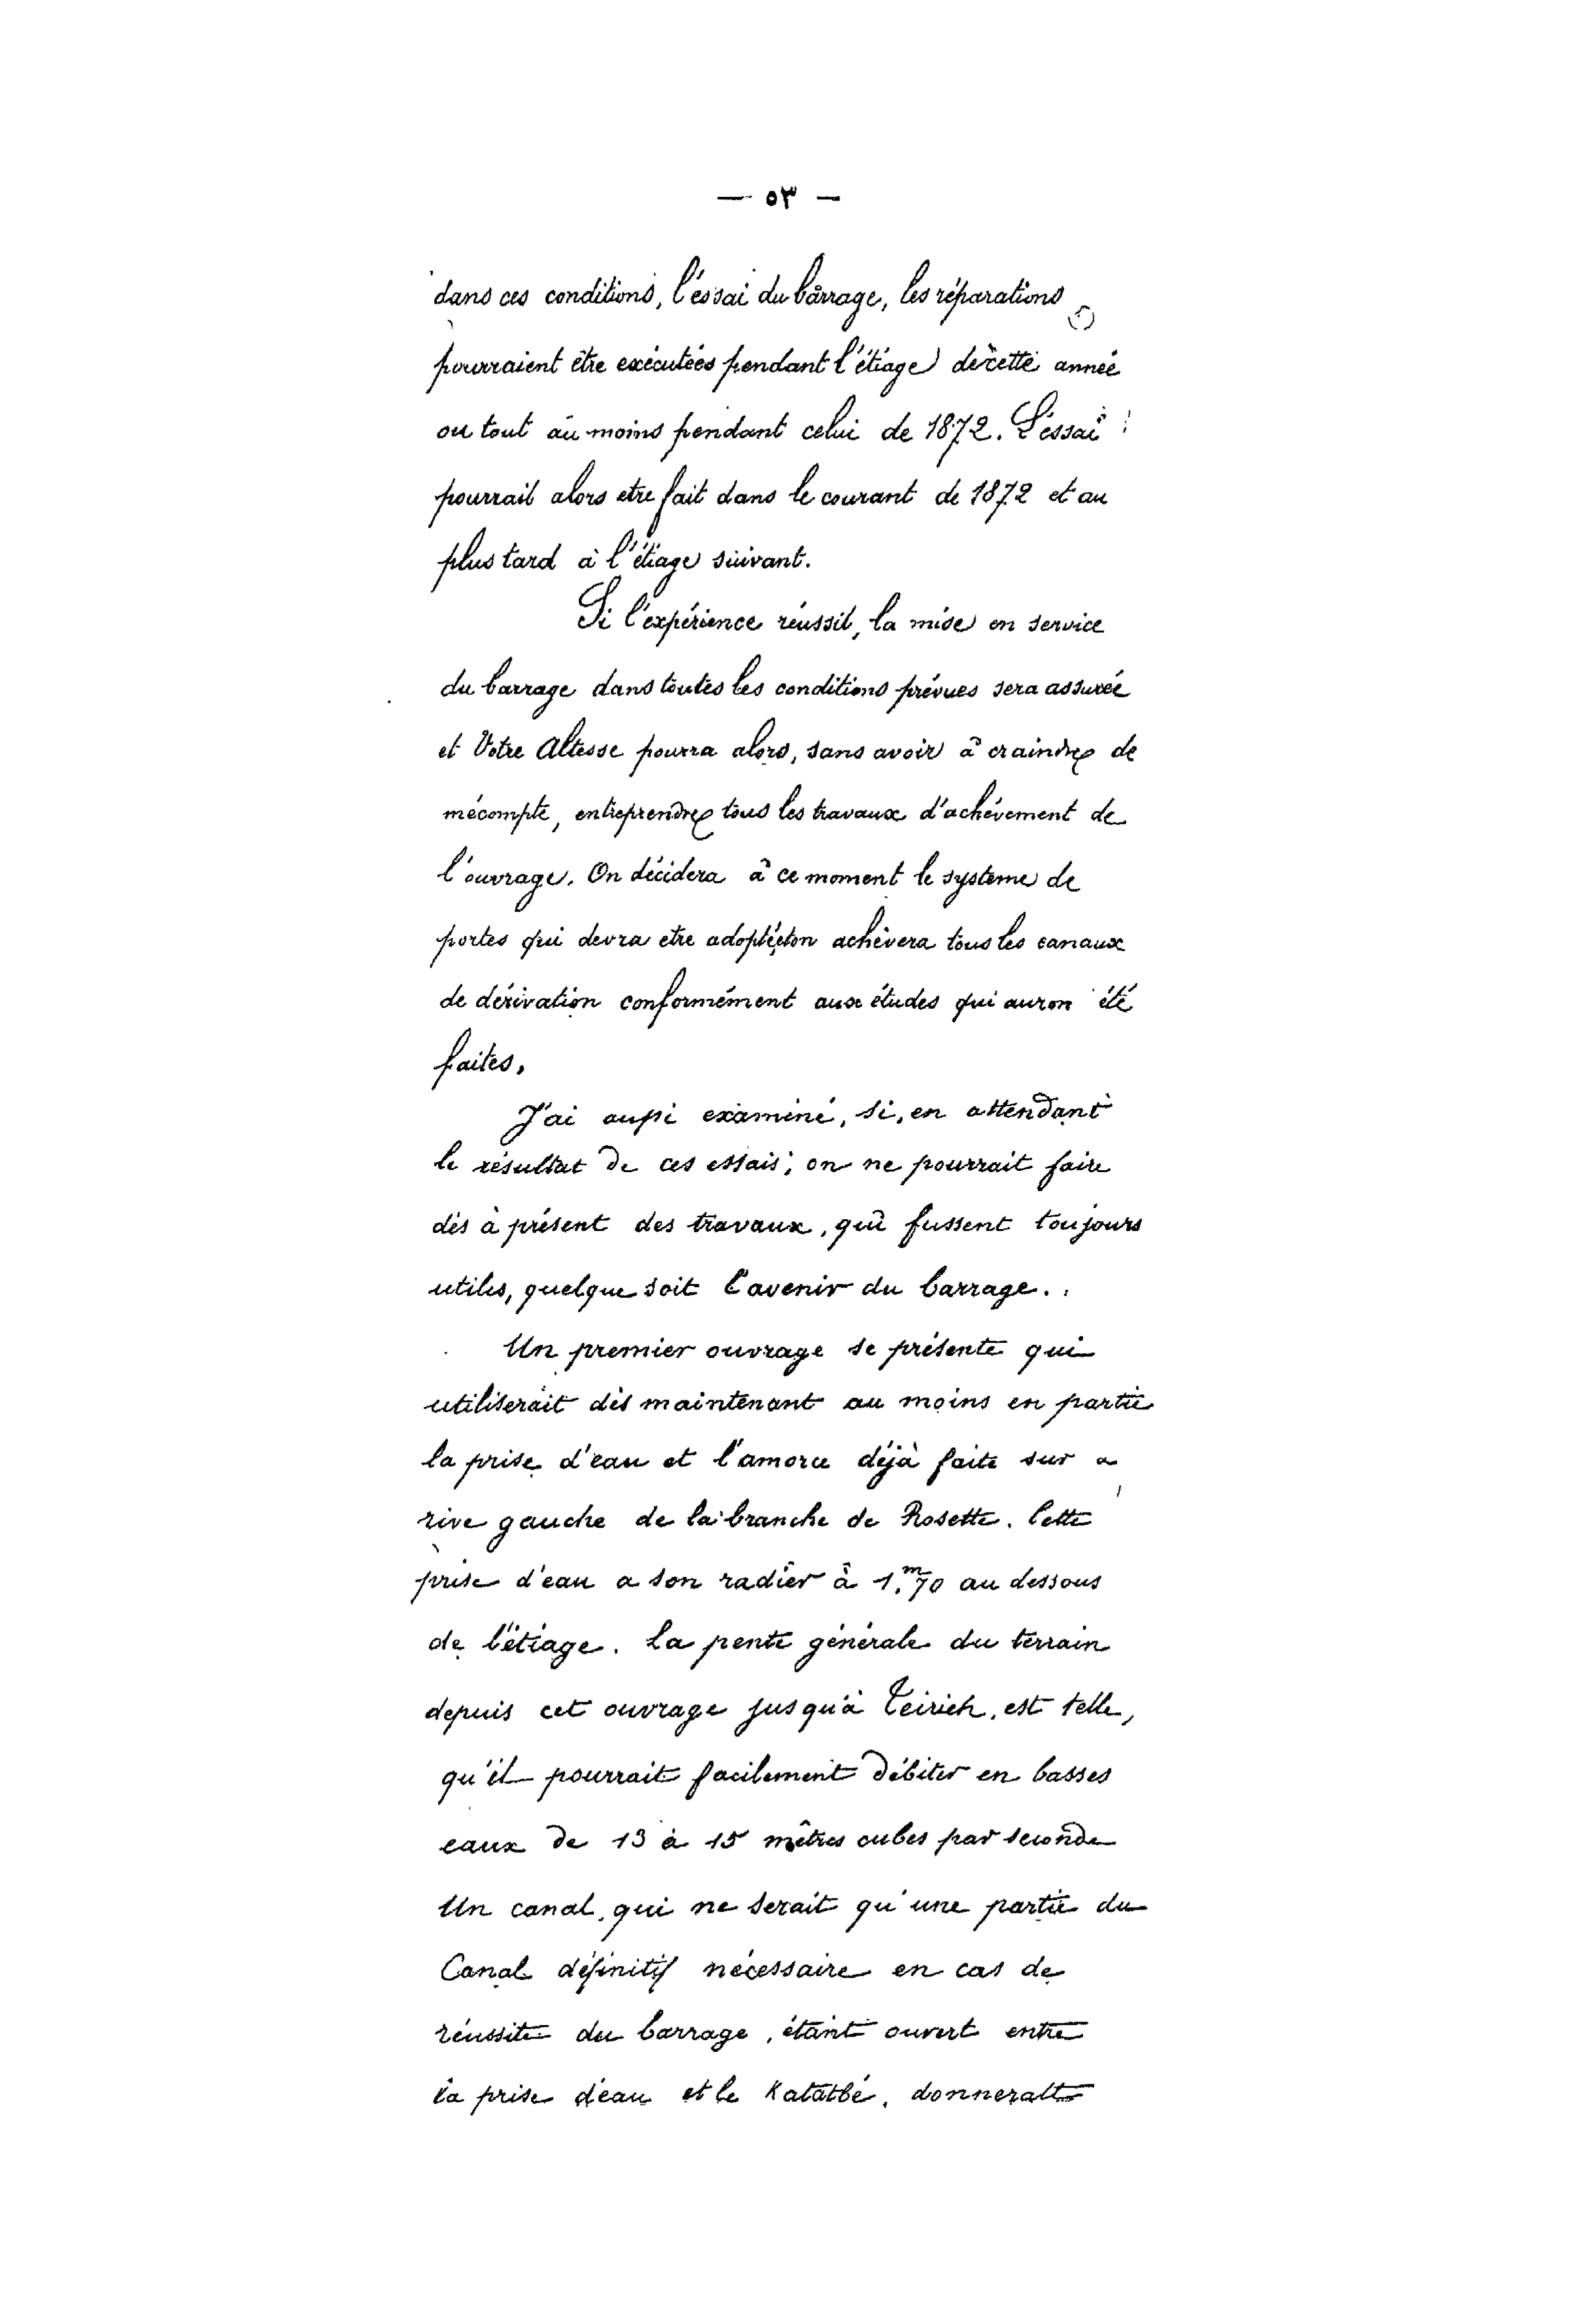 — ٥٣ —
dans ces conditions, l'éssai du barrage, les réparations
pourraient être exécutées pendant l'étiage de cette année
ou tout au moins pendant celui de 1872. L'éssai
pourrait alors etre fait dans le courant de 1872 et au
plus tard à l'étiage suivant.
Si l'expérience réussit, la mise en service
du barrage dans toutes les conditions prévues sera assurée
et Votre Altesse pourra alors, sans avoir à craindre de
mécompte, entreprendre tous les travaux d'achévement de
l'ouvrage. On décidera à ce moment le systeme de
portes qui devra etre adopté, et on achèvera tous les canaux
de dérivation conformément aux études qui auron été
faites.
J'ai aussi examiné, si, en attendant
le résultat de ces essais, on ne pourrait faire
dès à présent des travaux, qui fussent toujours
utiles, quelque soit l'avenir du barrage.
Un premier ouvrage se présente qui
utiliserait dès maintenant au moins en partie
la prise d'eau et l'amorce déjà faite sur a
rive gauche de la branche de Rosette. Cette
prise d'eau a son radier à 1.m70 au dessous
de l'étiage. La pente générale du terrain
depuis cet ouvrage jusqu'à Teirieh, est telle,
qu'il pourrait facilement débiter en basses
eaux de 13 à 15 mètres cubes par seconde
Un canal, qui ne serait qu'une partie du
Canal définitif nécessaire en cas de
réussite du barrage, étant ouvert entre
la prise d'eau et le Katatbé, donnerait